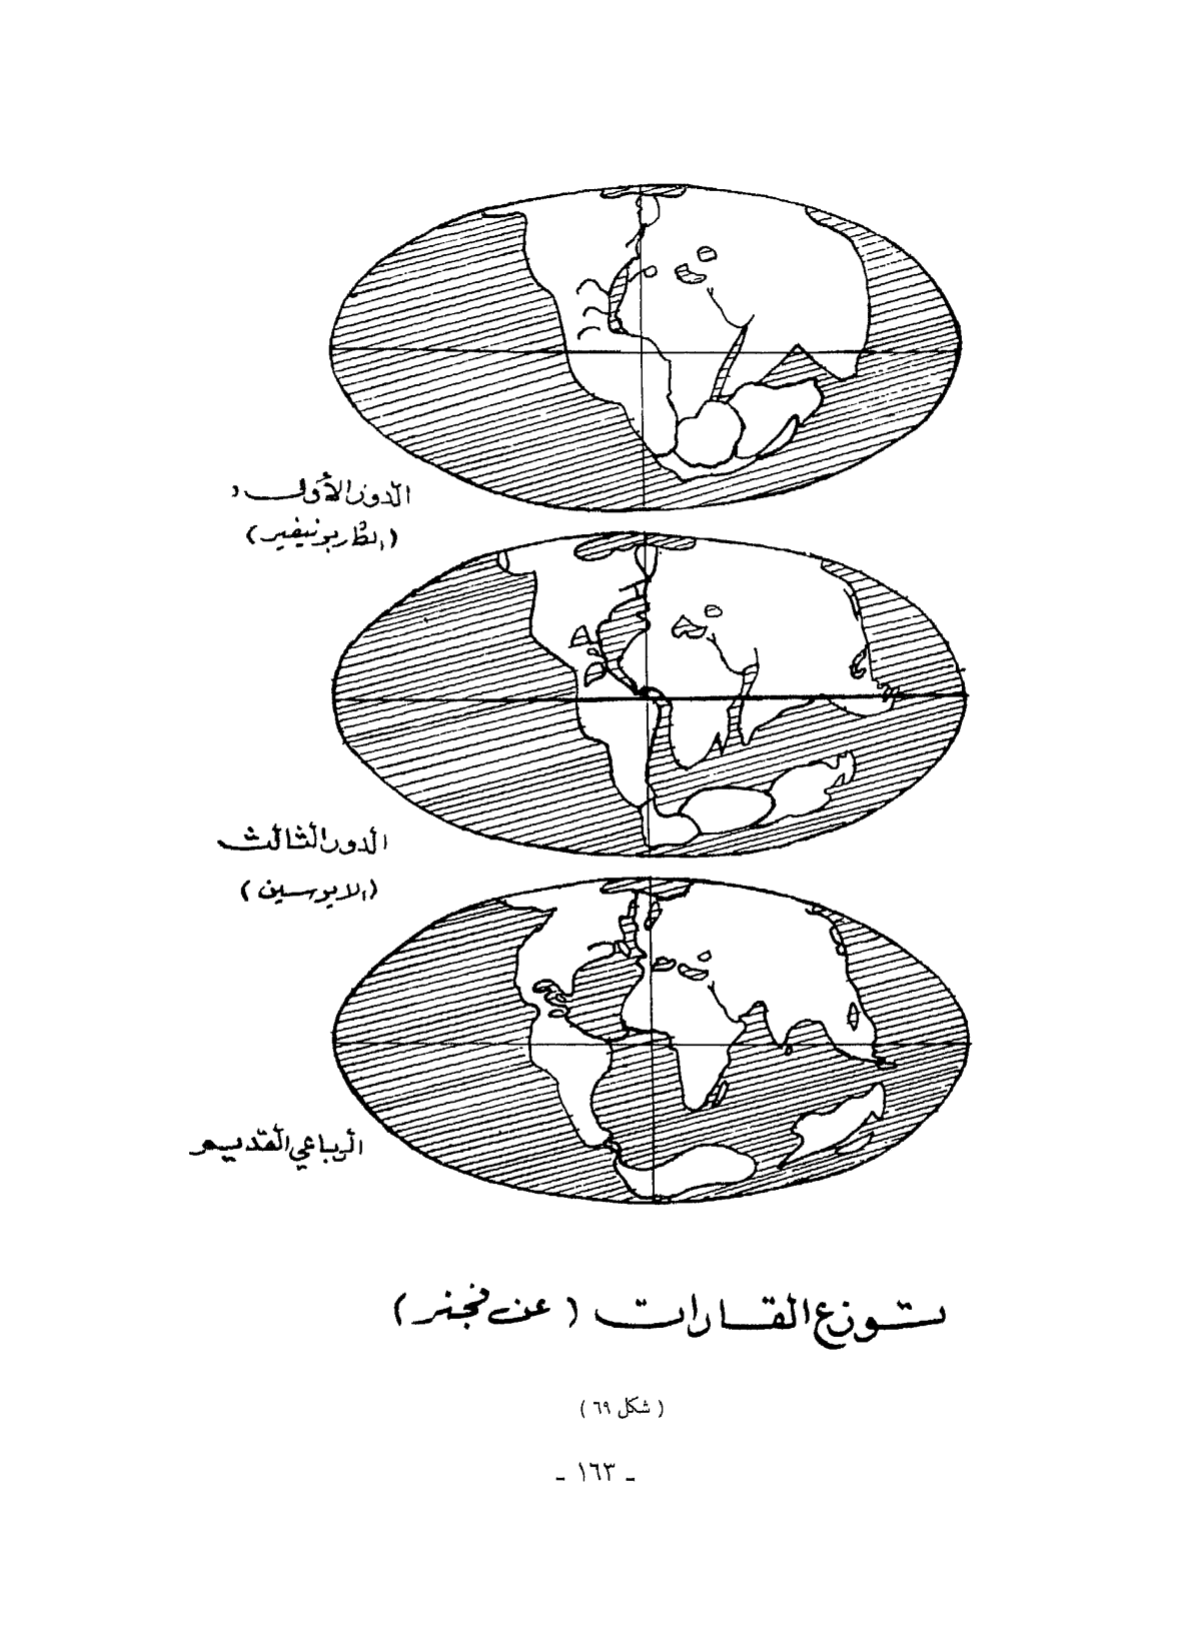 الدور الأول
(الكاربونيفير)
الدور الثالث
(الايوسين)
الرباعي القديم
توزع القارات (عن فجنر)
( شكل ٦٩ )
- ١٦٣ -